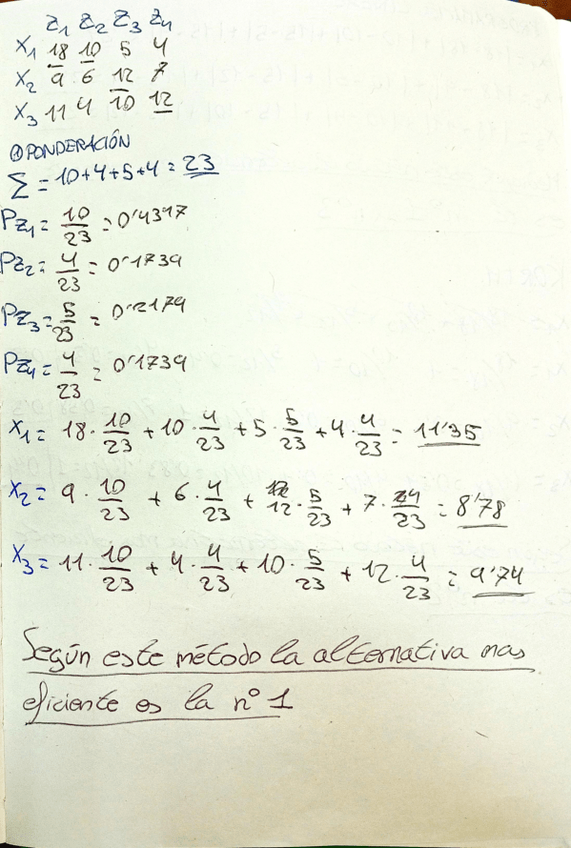 Z1 Z2 Z3 Z4
X1 18 10 5 4
X2 9 6 12 7
X3 11 4 10 12
① PONDERACIÓN
Σ = 10+4+5+4 = 23
PZ1 = 10/23 = 0'4347
PZ2 = 4/23 = 0'1739
PZ3 = 5/23 = 0'2174
PZ4 = 4/23 = 0'1739
X1 = 18 · 10/23 + 10 · 4/23 + 5 · 5/23 + 4 · 4/23 = 11'35
X2 = 9 · 10/23 + 6 · 4/23 + 12 · 5/23 + 7 · 4/23 = 8'78
X3 = 11 · 10/23 + 4 · 4/23 + 10 · 5/23 + 12 · 4/23 = 9'74
Según este método la alternativa mas
eficiente es la nº 1